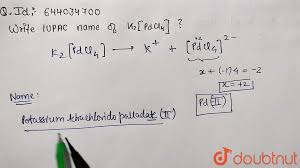 Q.Id.: 644034700
Write IUPAC name of K₂[PdCl₄] ?
K₂[PdCl₄] ⟶ K⁺ + [PdCl₄]²⁻
x + (-1)4 = -2
x = +2
Pd(II)
Name:
Potassium tetrachloridopalladate (II)